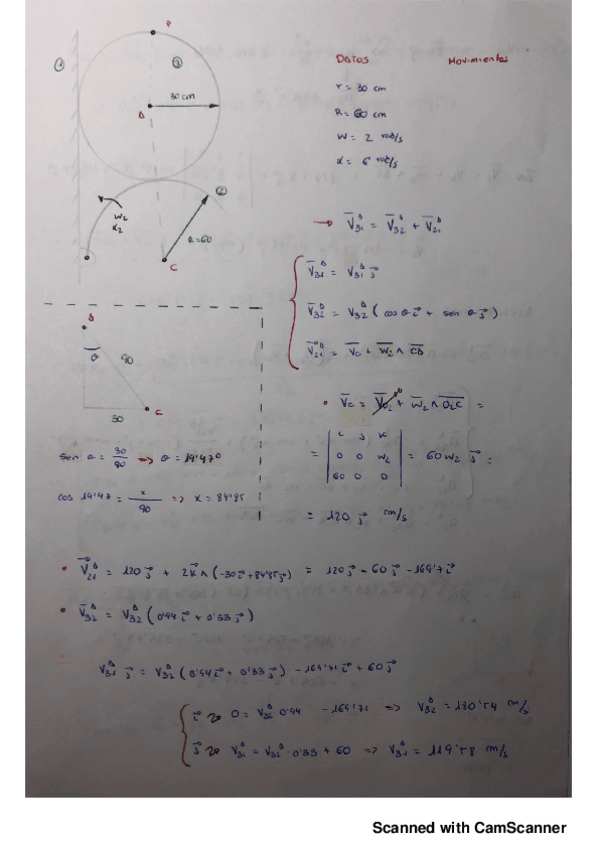 P
1
3
DATOS
Movimientos
30 cm
r = 30 cm
R = 60 cm
W = 2 rad/s
α = 6 rad/s
2
W₂
α₂
R=60
C
→ V̄₃₁ᴬ = V̄₃₂ᴬ + V̄₂₁ᴬ
V̄₃₁ᴬ = V₃₁ᴬ j⃗
V̄₃₂ᴬ = V₃₂ᴬ (cos θ i⃗ + sen θ j⃗)
V̄₂₁ᴬ = V̄c + W̄₂ ∧ C̄Ā
θ
90
30
C
• V̄c = V̄o₂ + W̄₂ ∧ O̅₂C̅ =
= | i j k | 0 0 W₂ | 60 0 0 | = 60 W₂ j⃗ =
= 120 j⃗ cm/s
sen θ = 30/90 => θ = 19'47º
cos 19'47 = x/90 => x = 84'85
• V⃗₂₁ᴬ = 120 j⃗ + 2k⃗ ∧ (-30 i⃗ + 84'85 j⃗) = 120 j⃗ - 60 j⃗ - 169'7 i⃗
• V̄₃₂ᴬ = V₃₂ᴬ (0'94 i⃗ + 0'33 j⃗)
V₃₁ᴬ j⃗ = V₃₂ᴬ (0'94 i⃗ + 0'33 j⃗) - 169'71 i⃗ + 60 j⃗
0 = V₃₂ᴬ 0'94 - 169'71 => V₃₂ᴬ = 180'54 cm/s
V₃₁ᴬ = V₃₂ᴬ · 0'33 + 60 => V₃₁ᴬ = 119'58 cm/s
Scanned with CamScanner